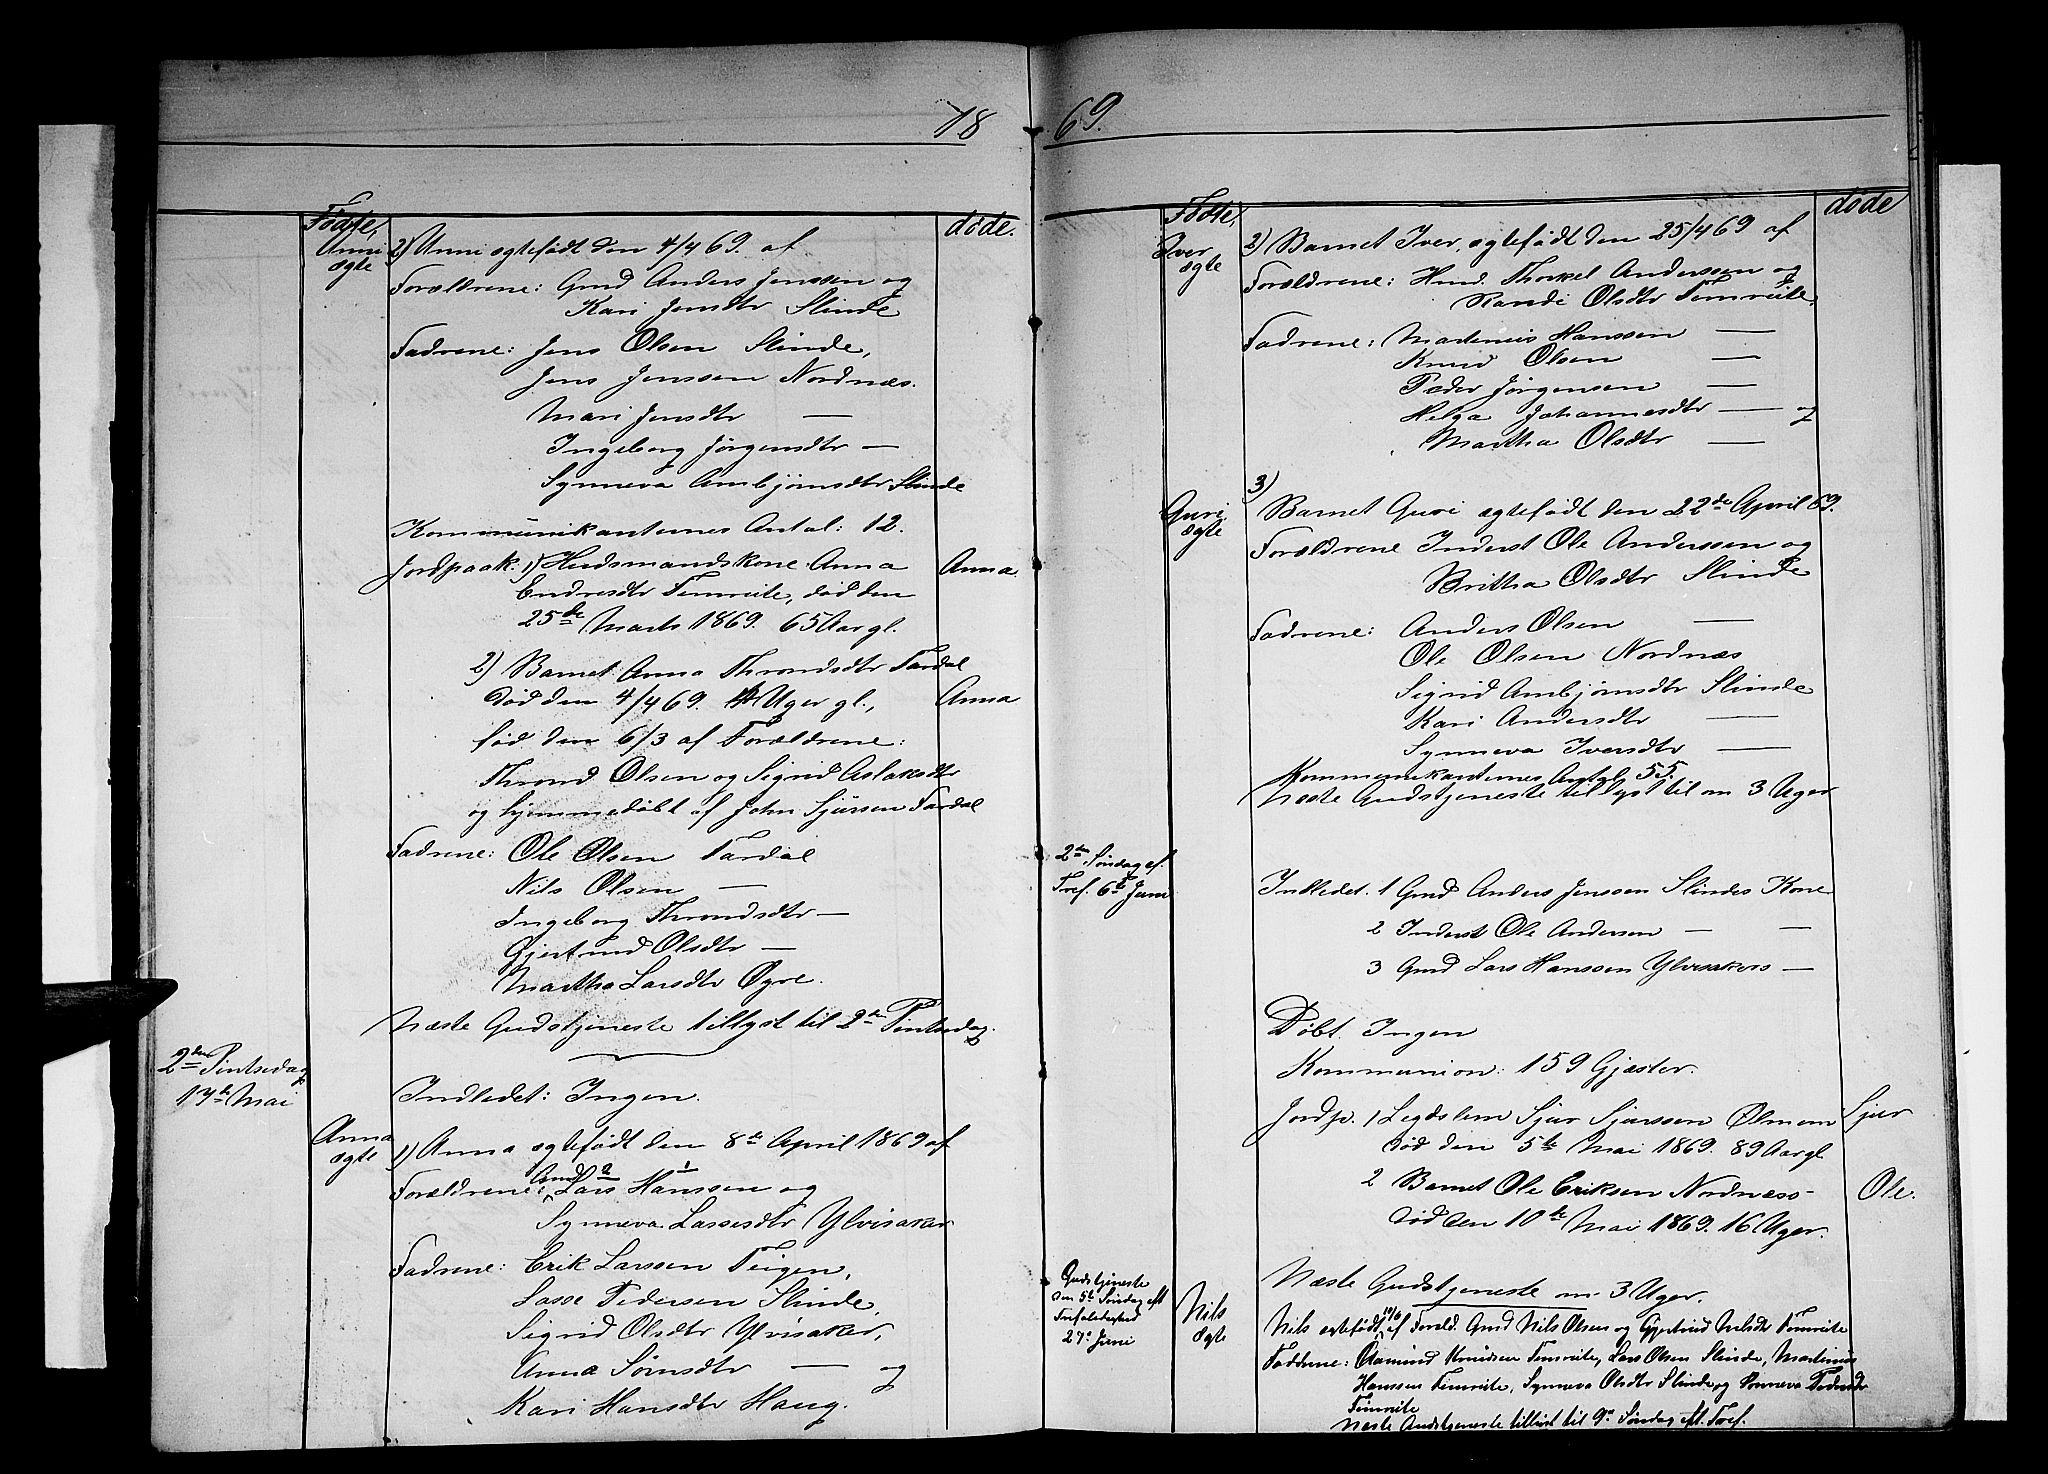 18
Fødte,
døde.
Anni
ægte
2) Anni ægtefødt den 4/4 69. af
Forældrene: Gmd Anders Jenssen og
Kari Jensdtr Slinde
Fadrene: Jens Olsen Slinde,
Jens Jenssen Nordnæs.
Mari Jensdtr —
Ingeborg Jørgensdtr —
Synneva Ambjørnsdtr Slinde
Kommunikanternes Antal: 12.
Jordpaak. 1) Husmandskone Anna
Anna
Endresdtr Timreite, død den
25de Marts 1869. 65 Aar gl.
2) Barnet Anna Throndsdtr Fardal
død den 4/4 69. 4 Uger gl.,
Anna
fød den 6/3 af Forældrene:
Thrond Olsen og Sigrid Aslaksdtr
og hjemmedøbt af John Sjursen Fardal
Fadrene: Ole Olsen Fardal
Nils Olsen —
Ingeborg Throndsdtr —
Gjertrud Olsdtr —
Martha Larsdtr Øgre.
Næste Gudstjeneste tillyst til 2den Pintsedag.
2den Pintsedag
17de Mai
Indledet: Ingen.
Anna
ægte
1) Anna ægtefødt den 8de April 1869 af
Forældrene: Gmd 2 Lars 1 Hanssen og
Synneva Lassesdtr Ylvisaker
Fadrene: Erik Larssen Teigen,
Lasse Pedersen Slinde,
Sigrid Olsdtr Ylvisaker,
Anna Sørnsdtr — og
Kari Hansdtr Haug.
69.
Fødte,
døde
Iver
ægte
2) Barnet Iver, ægtefødt den 25/4 69 af
Forældrene: Hmd. Thorkel Anderssen og
Randi Olsdtr Timreite,
Fadrene: Martinus Hanssen —
Knud Olsen —
Peder Jørgensen —
Helga Johannesdtr — og
Martha Olsdtr —
Guri,
ægte
3)
Barnet Guri ægtefødt den 22de April 69.
Forældrene Inderst Ole Anderssen og
Britha Olsdtr Slinde
Fadrene: Anders Olsen —
Ole Olsen Nordnæs
Sigrid Ambjørnsdtr Slinde
Kari Andersdtr —
Synneva Iversdtr —
Kommunikanternes Antal 55.
Næste Gudstjeneste tillyst til om 3 Uger
2den Søndag ef.
Tref. 6te Juni
Indledet: 1 Gmd Anders Jenssen Slindes Kone
2 Inderst Ole Andersen — —
3 Gmd Lars Hanssen Ylvisakers —
Døbt. Ingen
Kommunion: 159 Gjæster.
Jordp. 1 Legdslem Sjur Sjurssen Ølmem
Sjur
død den 5te Mai 1869. 89 Aar gl.
2 Barnet Ole Eriksen Nordnæss-
Ole.
død den 10de Mai 1869. 16 Uger.
Næste Gudstjeneste om 3 Uger.
Gudstjeneste
den 5te Søndag eft
Trefoldighed
27de Juni
Nils
ægte
Nils ægtefødt 10/6 af Foræld. Gmd Nils Olsen og Gjertrud Nilsdtr Timreite
Faddrene: Aamund Knudsen Timreite, Lars Olsen Slinde, Martinus
Hanssen Timreite, Synneva Olsdtr Slinde og Synneva Pedersdtr
Timreite
Næste Gudstjeneste tillyst til 9de Søndag eft. Tref.